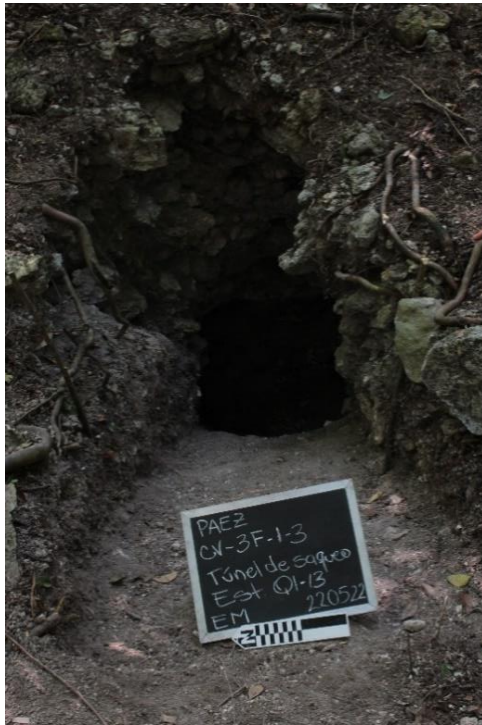 PAEZ
CV-3F-1-3
Túnel de saqueo
Est Q1-13
EM 220522
N